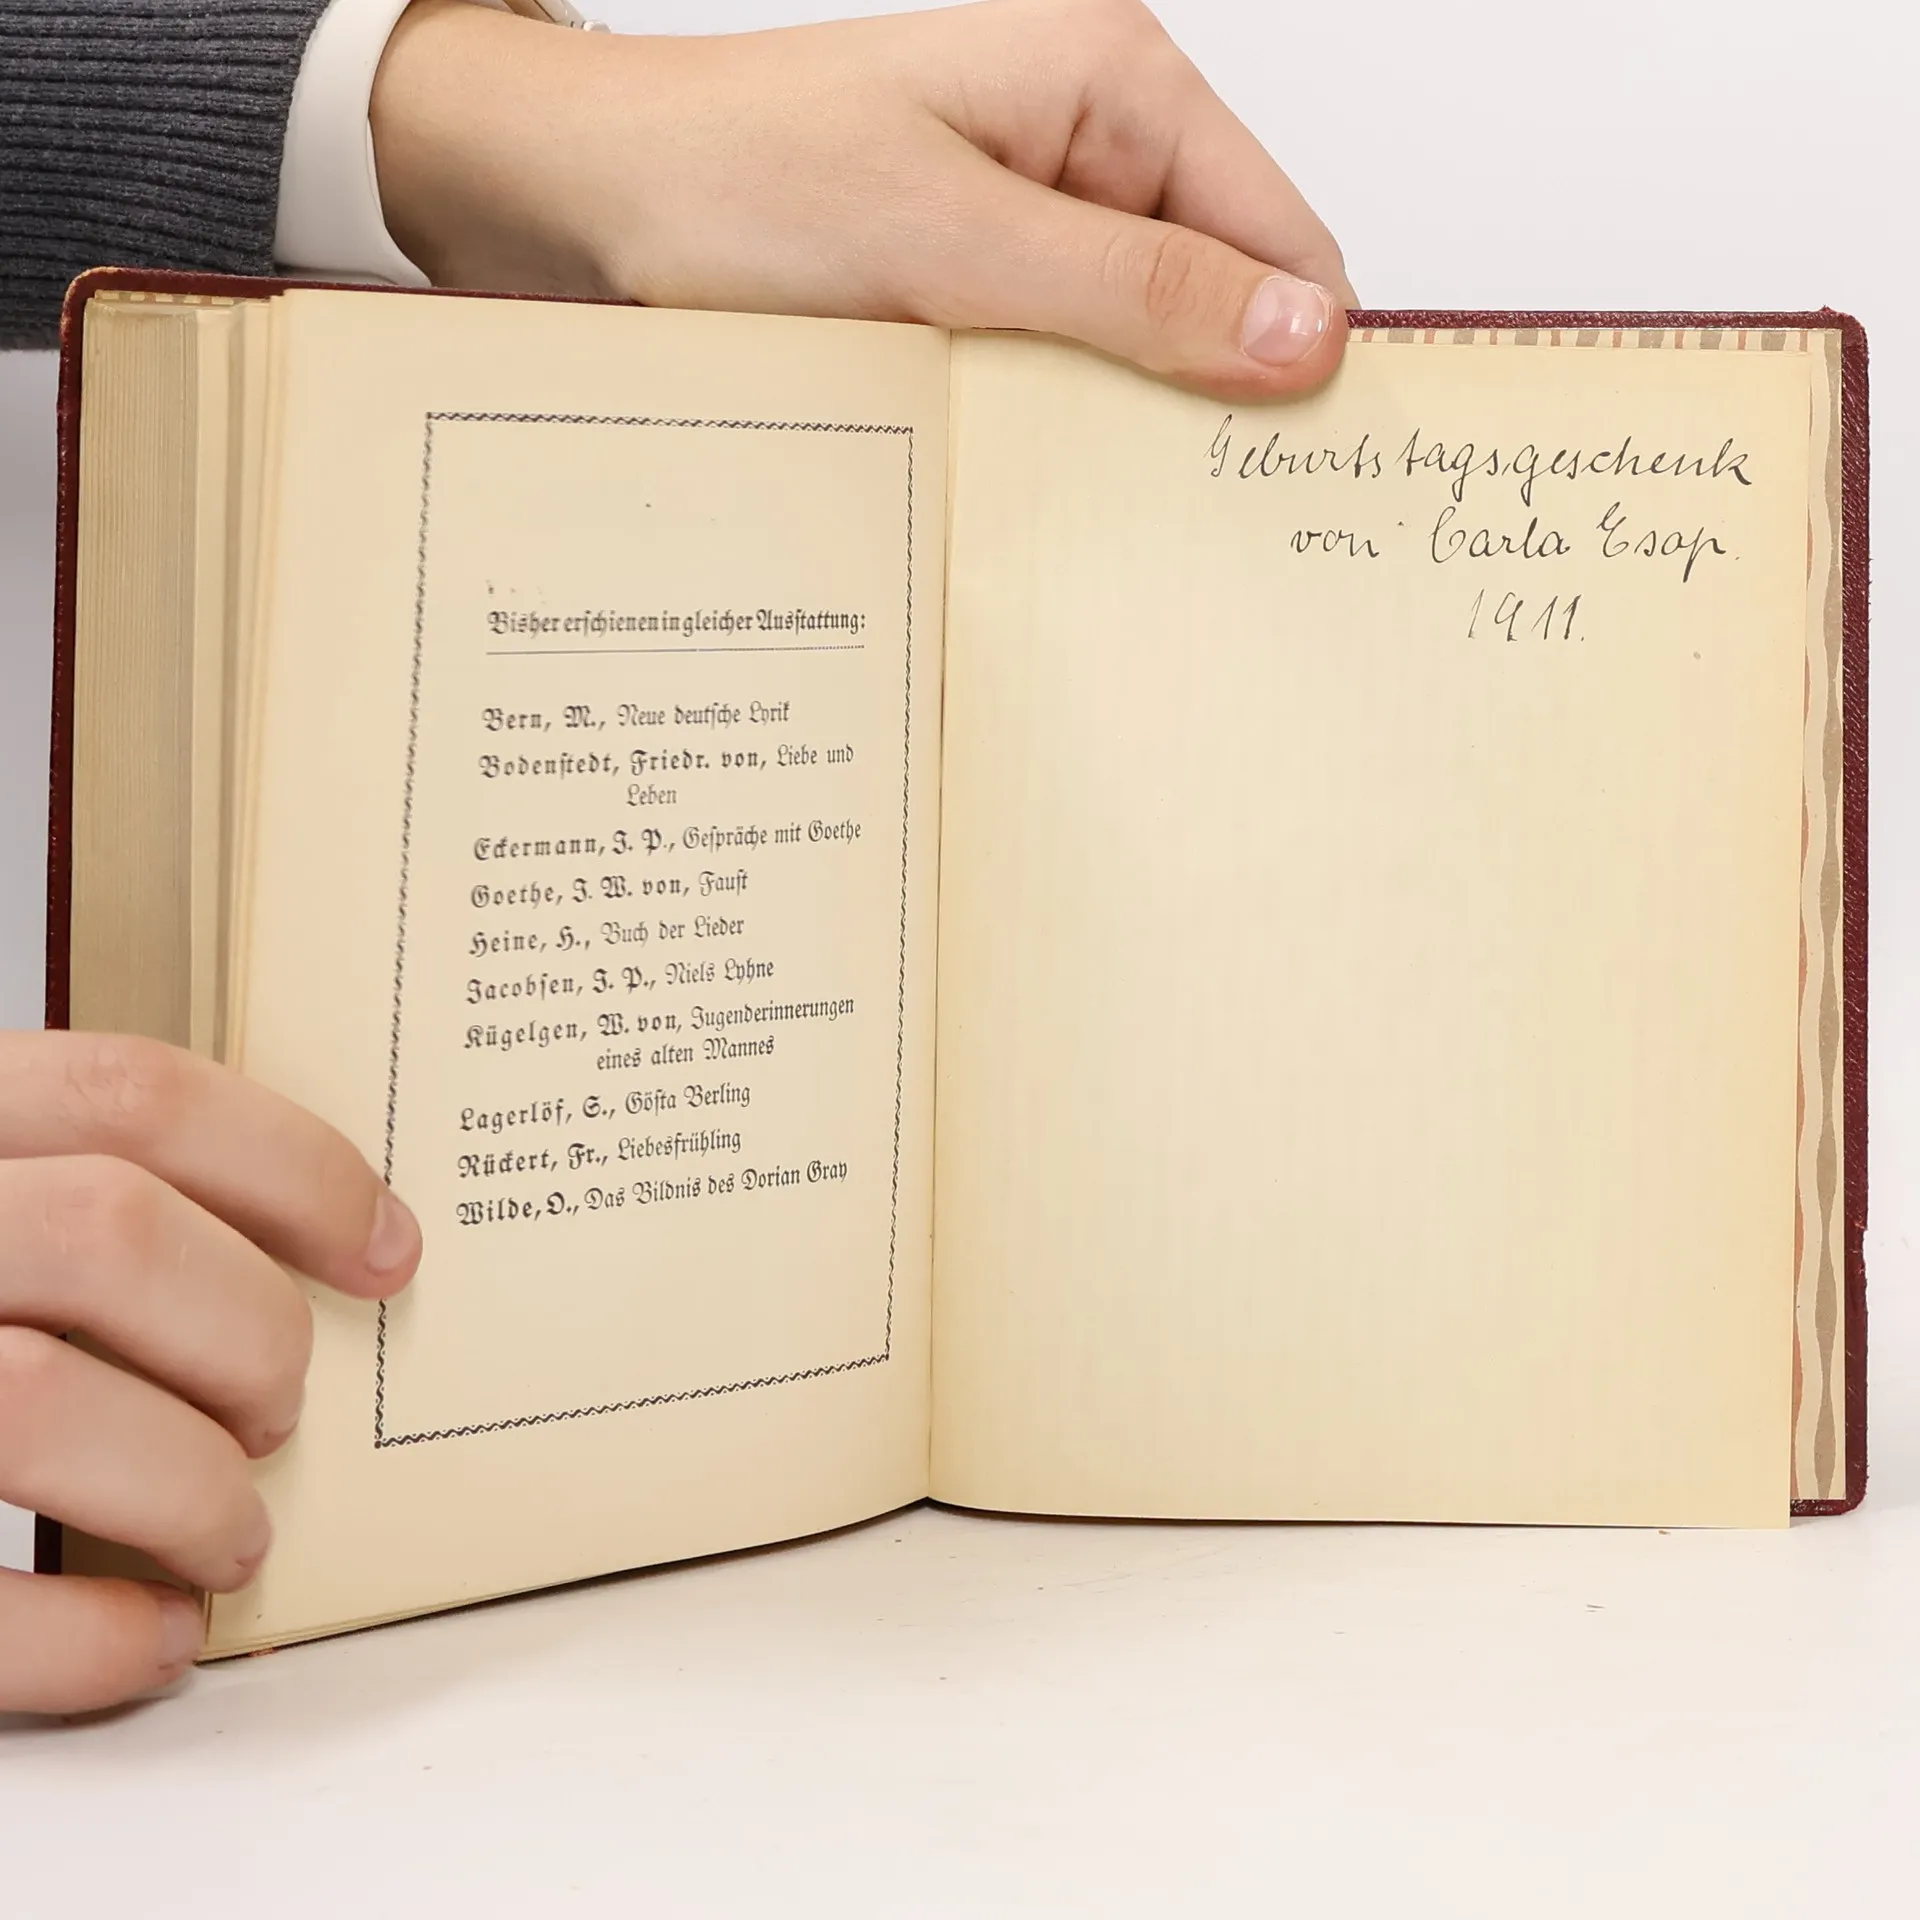 Bisher erschienen in gleicher Ausstattung:
Bern, M., Neue deutsche Lyrik
Bodenstedt, Friedr. von, Liebe und
Leben
Eckermann, J. P., Gespräche mit Goethe
Goethe, J. W. von, Faust
Heine, H., Buch der Lieder
Jacobsen, J. P., Niels Lyhne
Kügelgen, W. von, Jugenderinnerungen
eines alten Mannes
Lagerlöf, S., Gösta Berling
Rückert, Fr., Liebesfrühling
Wilde, O., Das Bildnis des Dorian Gray
Geburtstagsgeschenk
von Carla Esap.
1911.